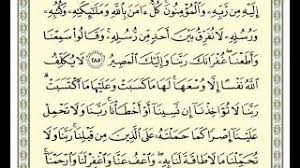 إِلَيْهِ مِن رَّبِّهِۦ وَٱلْمُؤْمِنُونَ كُلٌّ ءَامَنَ بِٱللَّهِ وَمَلَـٰٓئِكَتِهِۦ وَكُتُبِهِۦ
وَرُسُلِهِۦ لَا نُفَرِّقُ بَيْنَ أَحَدٍ مِّن رُّسُلِهِۦ وَقَالُوا۟ سَمِعْنَا
وَأَطَعْنَا غُفْرَانَكَ رَبَّنَا وَإِلَيْكَ ٱلْمَصِيرُ ٢٨٥ لَا يُكَلِّفُ
ٱللَّهُ نَفْسًا إِلَّا وُسْعَهَا لَهَا مَا كَسَبَتْ وَعَلَيْهَا مَا ٱكْتَسَبَتْ
رَبَّنَا لَا تُؤَاخِذْنَآ إِن نَّسِينَآ أَوْ أَخْطَأْنَا رَبَّنَا وَلَا تَحْمِلْ
عَلَيْنَآ إِصْرًا كَمَا حَمَلْتَهُۥ عَلَى ٱلَّذِينَ مِن قَبْلِنَا رَبَّنَا وَلَا
تُحَمِّلْنَا مَا لَا طَاقَةَ لَنَا بِهِۦ وَٱعْفُ عَنَّا وَٱغْفِرْ لَنَا وَٱرْحَمْنَآ